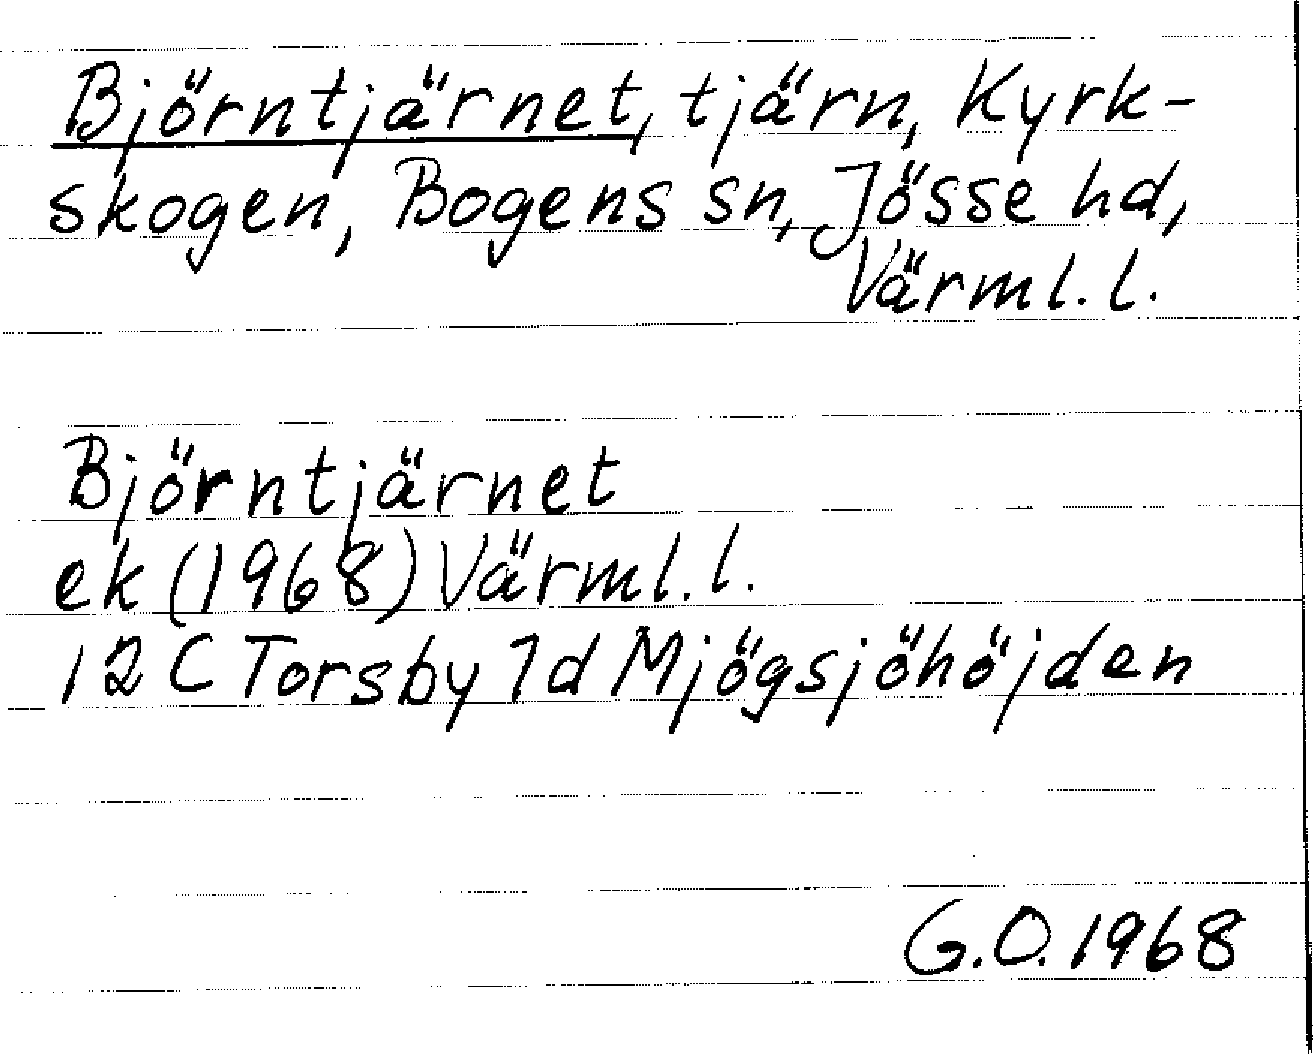 Björntjärnet, tjärn, Kyrk-
skogen, Bogens sn, Jösse hd,
Värml. l.
Björntjärnet
ek (1968) Värml. l.
12 C Torsby 7d Mjögsjöhöjden
G.O. 1968